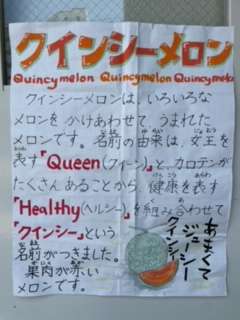 クインシーメロン
Quincymelon Quincymelon Quincymelo
クインシーメロンは、いろいろな
メロンをかけあわせて うまれた
メロンです。名前の由来は、女王を
表す「Queen(クイーン)」と、カロテンが
たくさんあることから、健康を表す
「Healthy(ヘルシー)」を組み合わせて
「クインシー」という
名前がつきました。
果肉が赤い
メロンです。
あまくて
ジューシー
クインシー